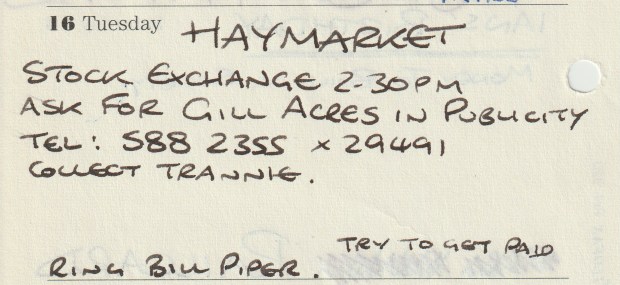 16 Tuesday HAYMARKET
STOCK EXCHANGE 2-30PM
ASK FOR GILL ACRES IN PUBLICITY
TEL: 588 2355 x 29491
COLLECT TRANNIE.
TRY TO GET PAID
RING BILL PIPER.